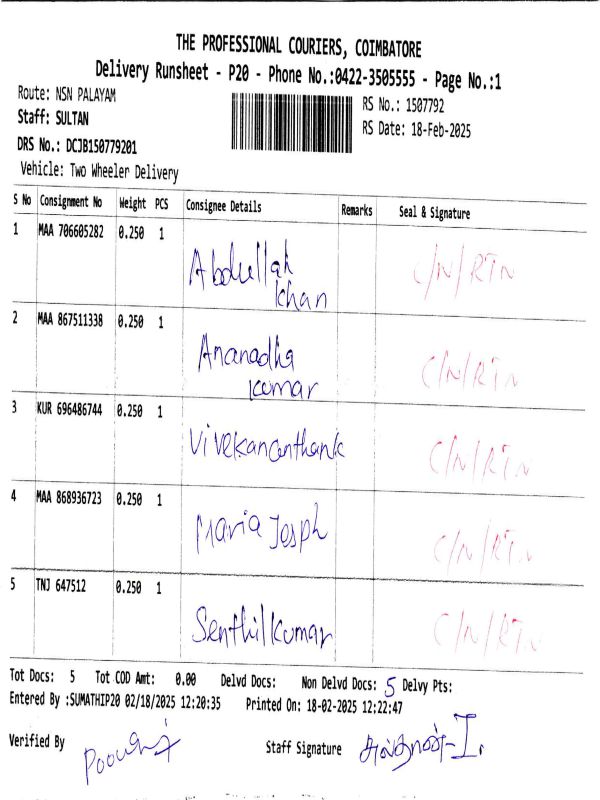 THE PROFESSIONAL COURIERS, COIMBATORE
Delivery Runsheet - P20 - Phone No.:0422-3505555 - Page No.:1
Route: NSN PALAYAM
RS No.: 1507792
Staff: SULTAN
RS Date: 18-Feb-2025
DRS No.: DCJB150779201
Vehicle: Two Wheeler Delivery
S No Consignment No Weight PCS Consignee Details Remarks Seal & Signature
1 MAA 706605282 0.250 1
Abdullah C/N/RTN
khan
2 MAA 867511338 0.250 1
Ananadha C/N/RTN
kumar
3 KUR 696486744 0.250 1
Vivekananthank C/N/RTN
4 MAA 868936723 0.250 1
Maria Josph C/N/RTN
5 TNJ 647512 0.250 1
Senthilkumar C/N/RTN
Tot Docs: 5 Tot COD Amt: 0.00 Delvd Docs: Non Delvd Docs: 5 Delvy Pts:
Entered By :SUMATHIP20 02/18/2025 12:20:35 Printed On: 18-02-2025 12:22:47
Verified By
Staff Signature சுல்தான்-I.